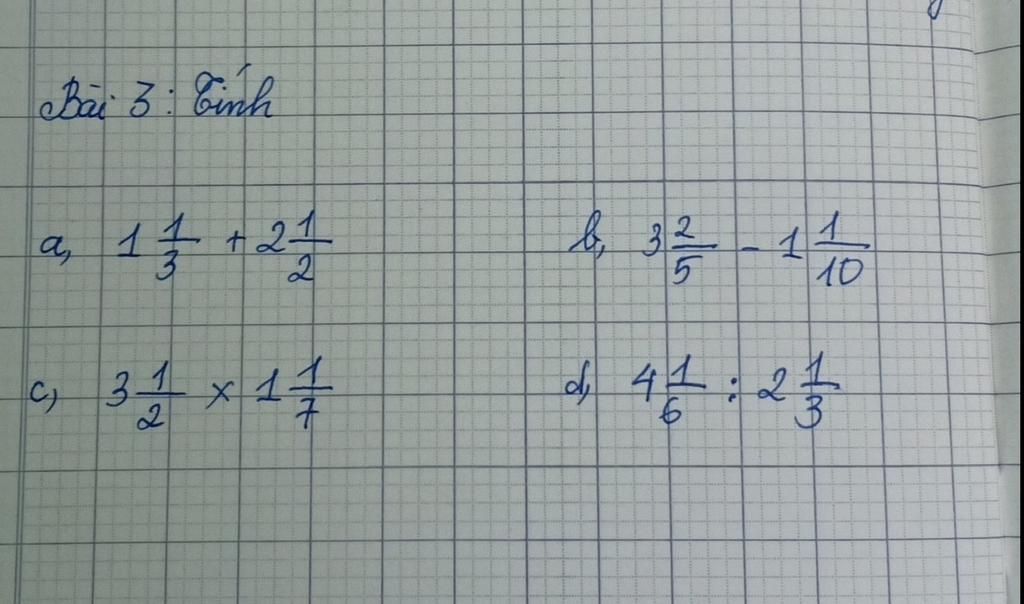 Bài 3: Tính
a, 1 1/3 + 2 1/2 b, 3 2/5 - 1 1/10
c, 3 1/2 x 1 1/7 d, 4 1/6 : 2 1/3